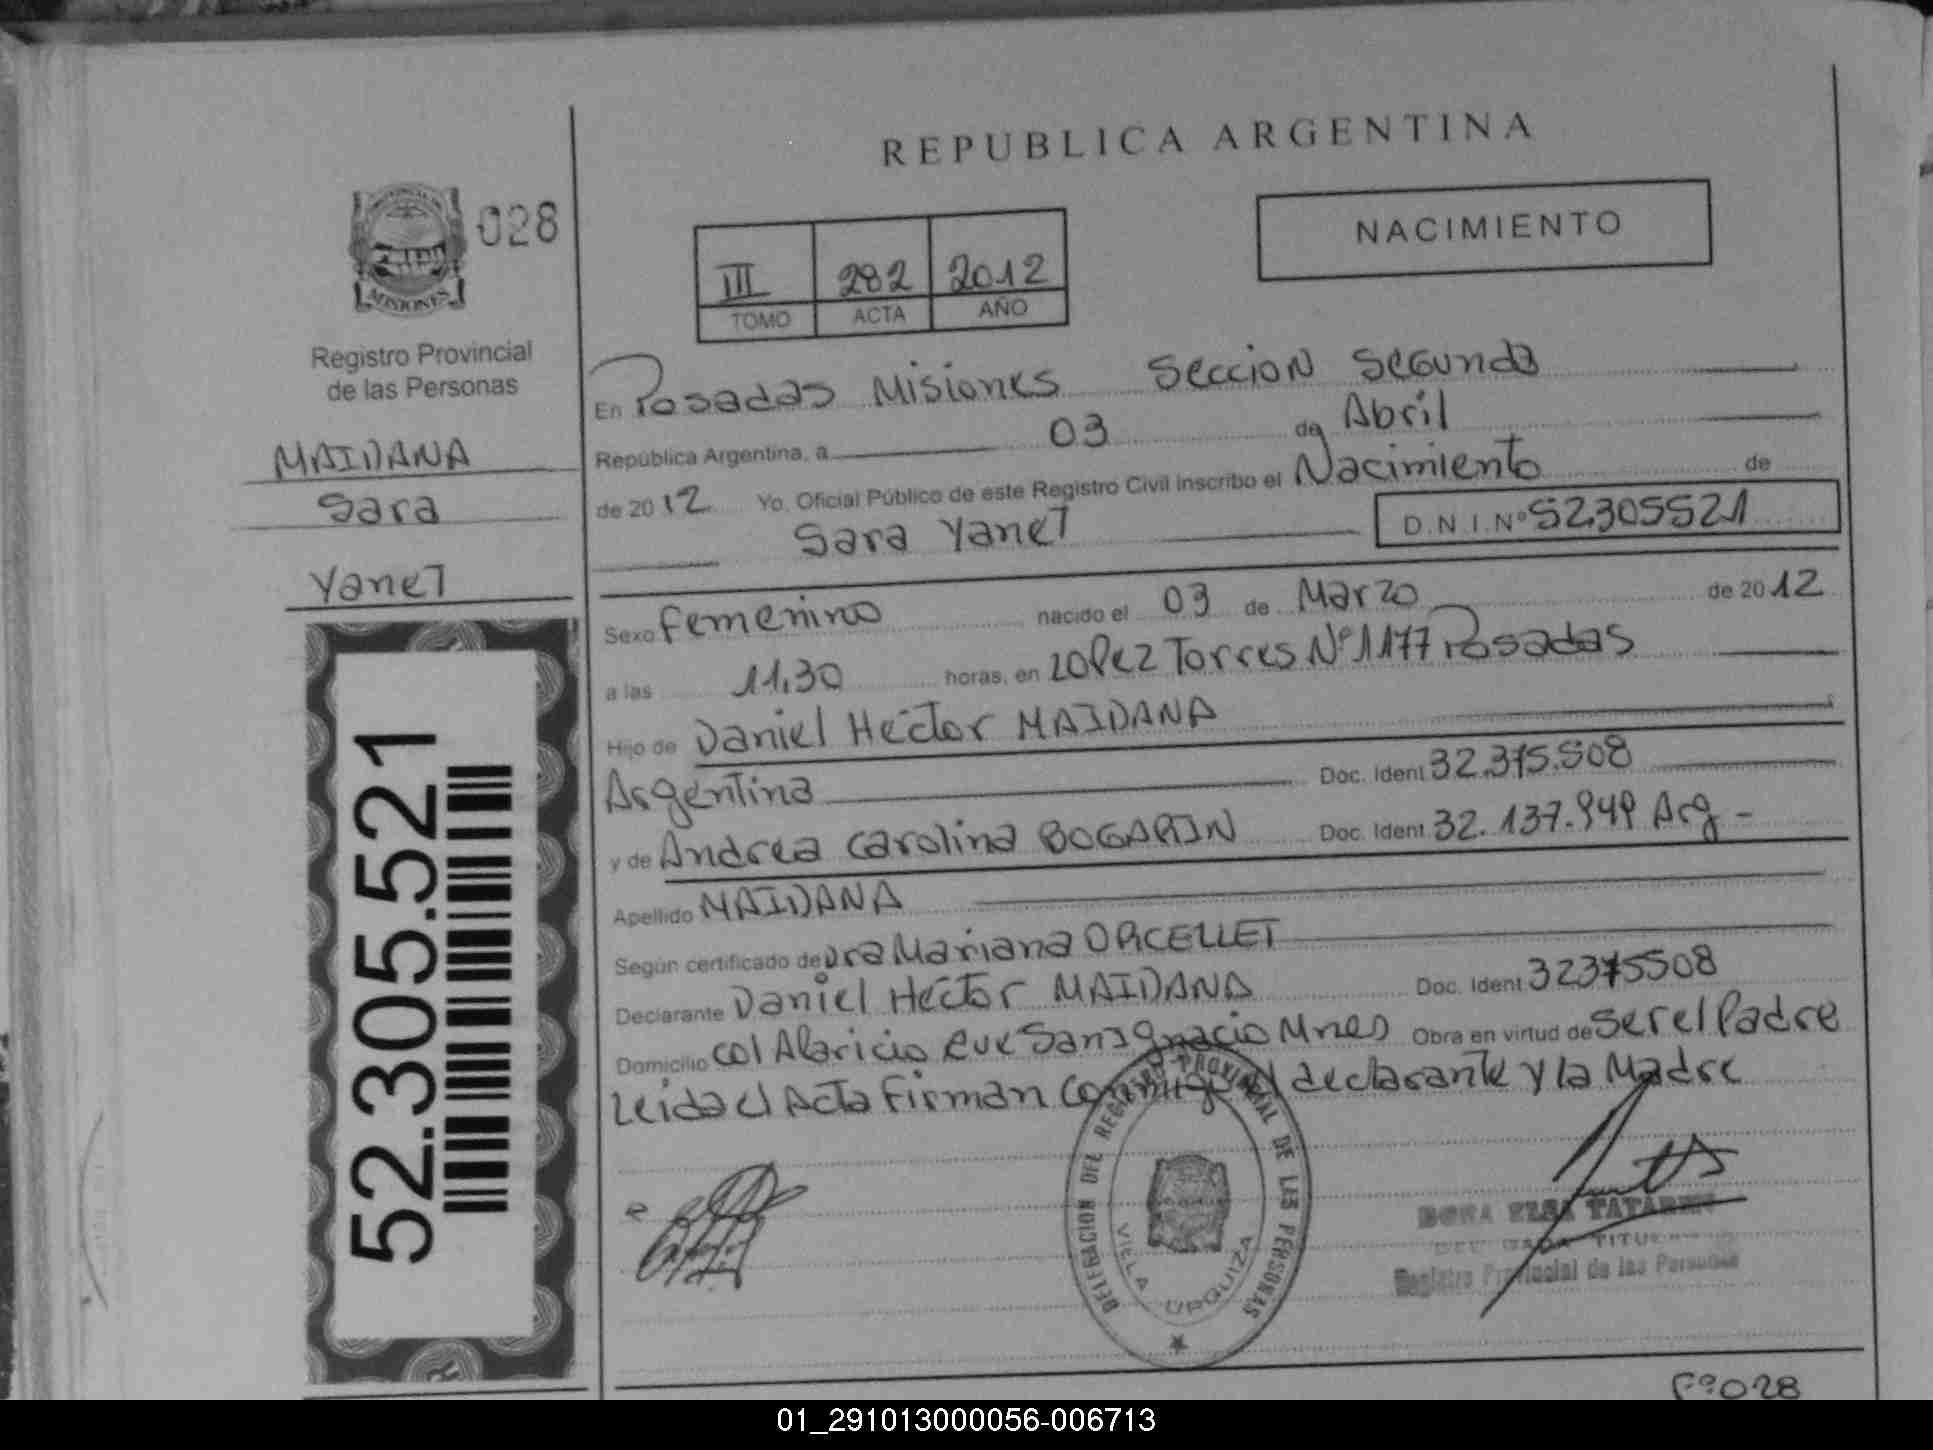 REPUBLICA ARGENTINA
MISIONES
028
NACIMIENTO
III 282 2012
TOMO ACTA AÑO
Registro Provincial
de las Personas
MAIDANA
Sara
Yanet
52.305.521
En Posadas Misiones Seccion Segunda
República Argentina, a 03 de Abril
de 2012 Yo, Oficial Público de este Registro Civil inscribo el Nacimiento de
Sara Yanet D.N.I. Nº 52305521
Sexo Femenino nacido el 03 de Marzo de 2012
a las 11,30 horas, en Lopez Torres Nº 1177 Posadas
Hijo de Daniel Hector MAIDANA
Argentina Doc. Ident 32.375.508
y de Andrea Carolina BOGARIN Doc. Ident 32.137.949 Arg -
Apellido MAIDANA
Según certificado de Dra Mariana ORCELLET
Declarante Daniel Hector MAIDANA Doc. Ident 32375508
Domicilio Col Alaricio San Ignacio Mnes Obra en virtud de Ser el Padre
Leida el Acta Firman Conmigo el declarante y la Madre
DELEGACION DEL REGISTRO PROVINCIAL DE LES PERSONAS
VILLA URQUIZA
ELSA
TITULAR
Registro Provincial de las Personas
Fº 028
01_291013000056-006713